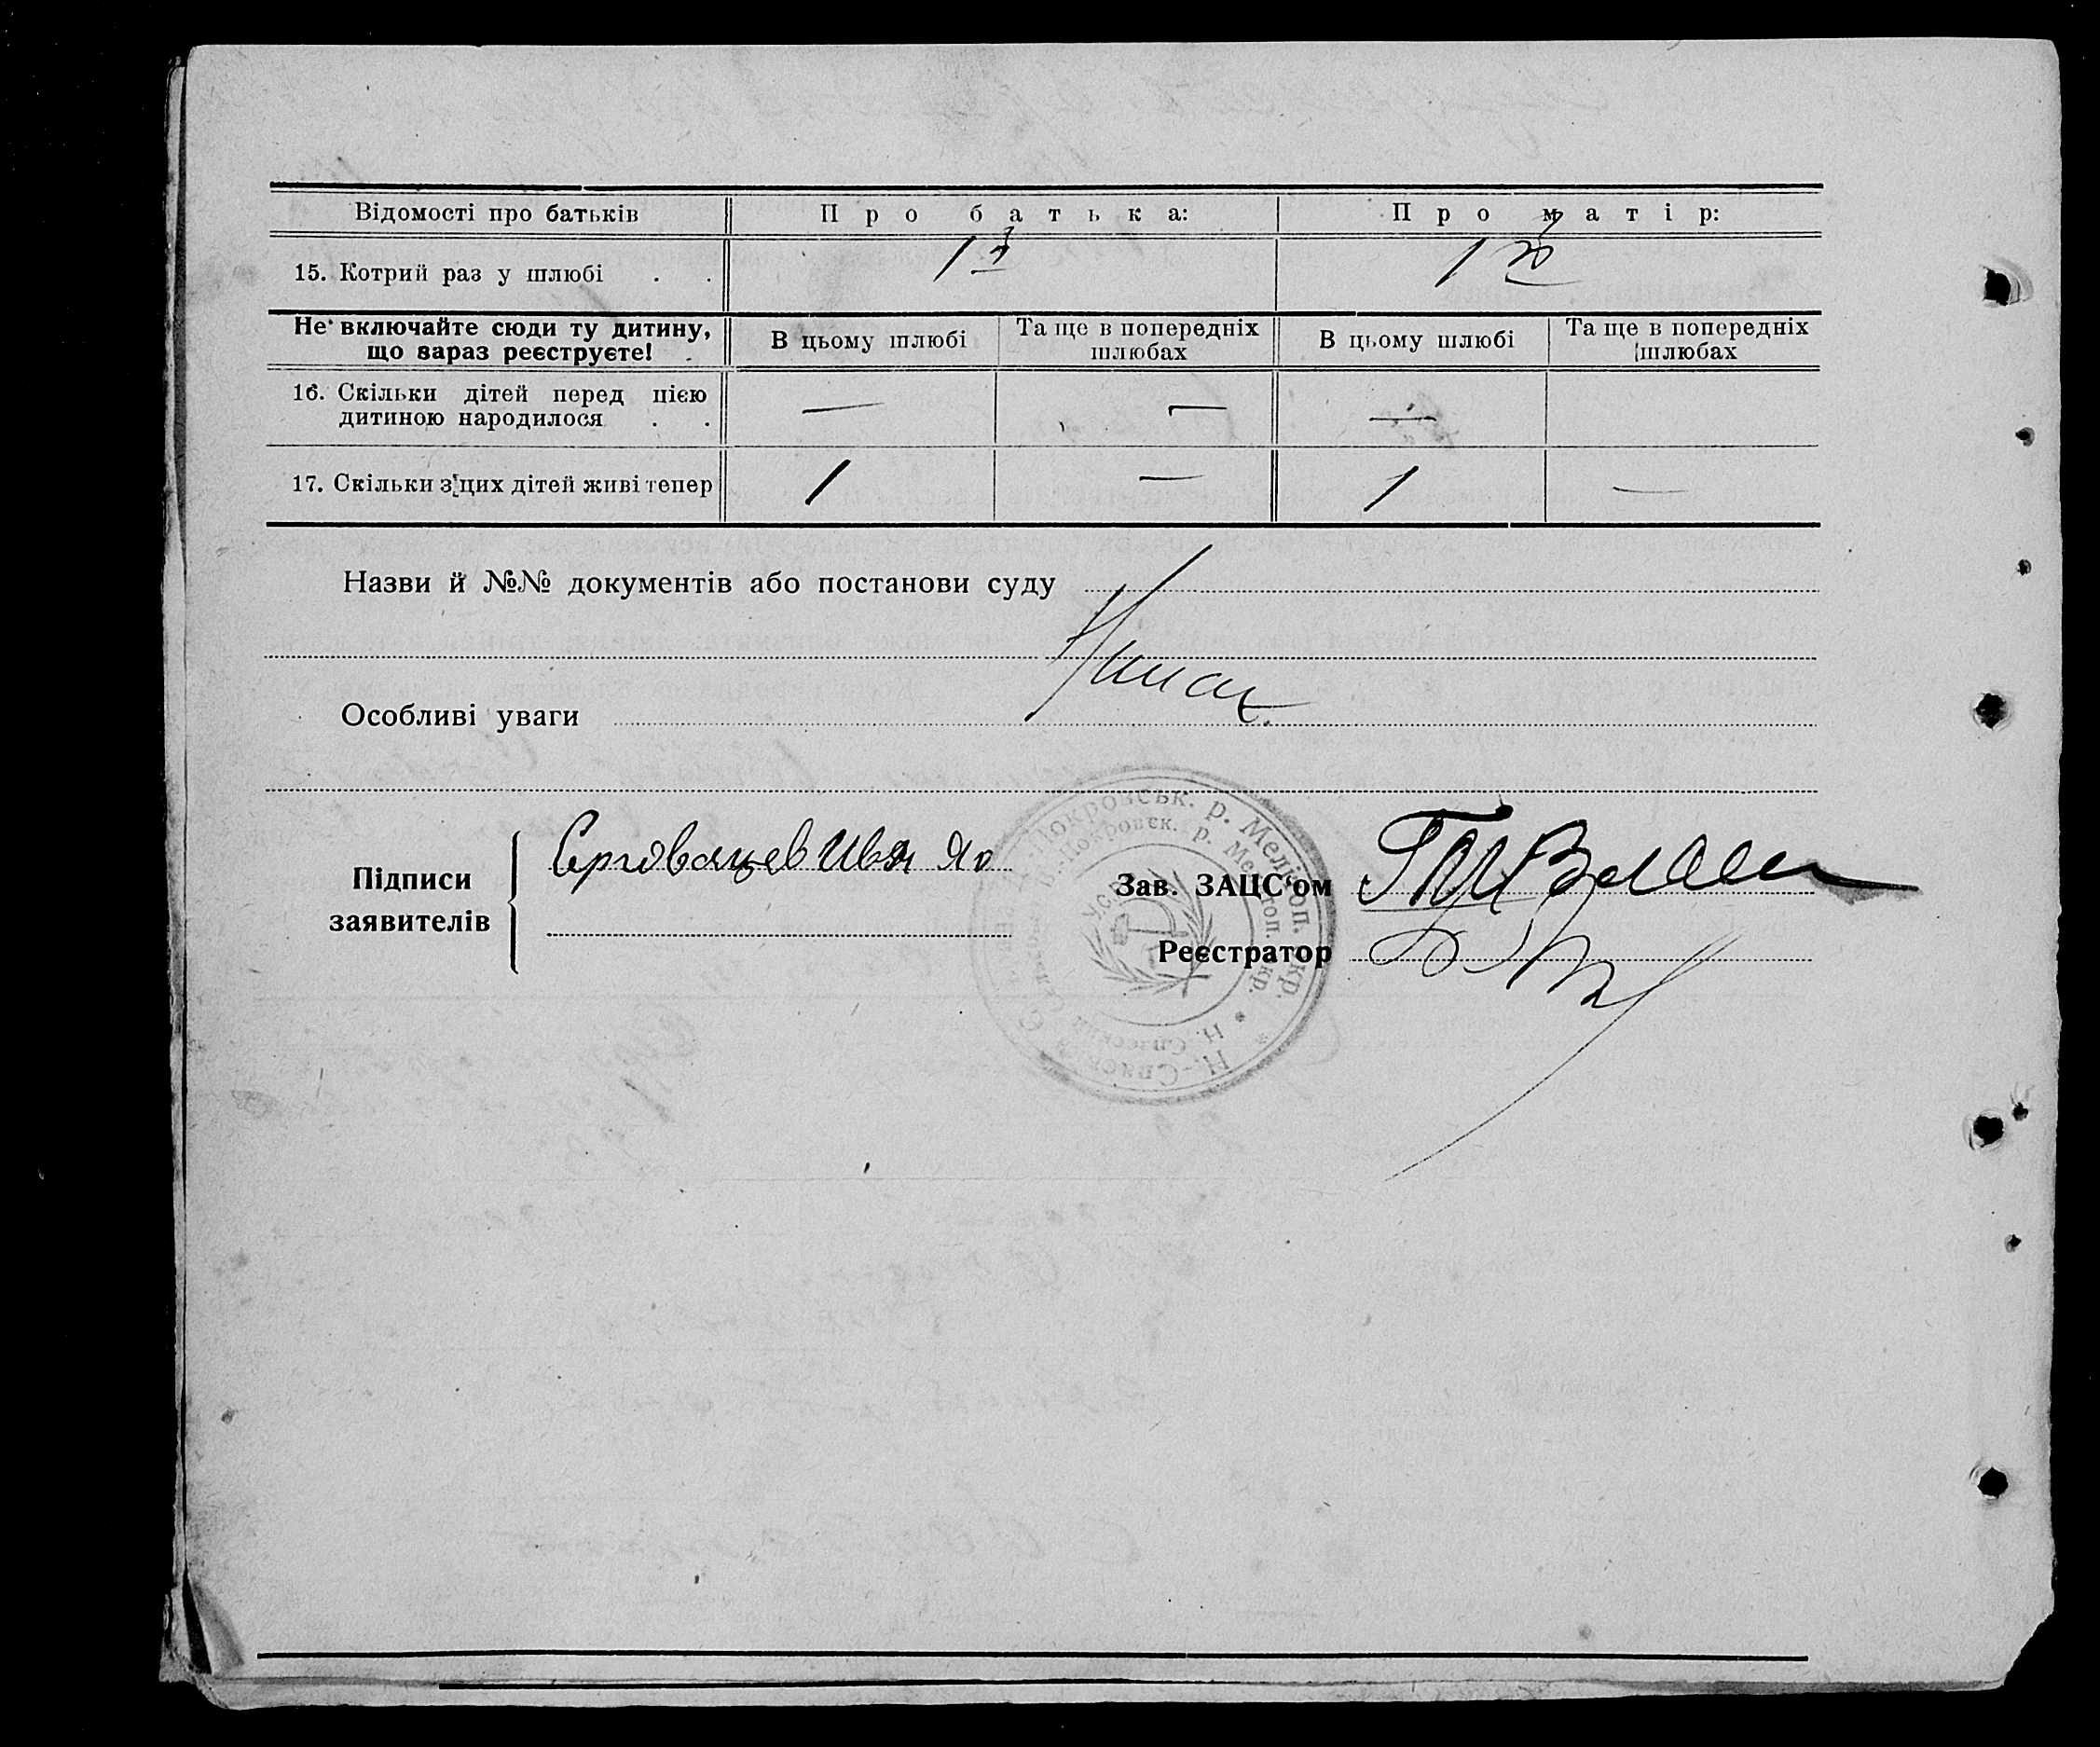 Відомості про батьків Про батька: Про матір:
15. Котрий раз у шлюбі . . 1й 1й
Не включайте сюди ту дитину, що зараз реєструєте! В цьому шлюбі Та ще в попередніх шлюбах В цьому шлюбі Та ще в попередніх шлюбах
16. Скільки дітей перед цією дитиною народилося . . — — —
17. Скільки з цих дітей живі тепер 1 — 1 —
Назви й №№ документів або постанови суду
Особливі уваги
Підписи заявителів
Зав. ЗАЦС'ом
Реєстратор
Покровськ. р. Меліоп. окр.
Н.-Спаськ
Покровск. р. Мелитоп. окр.